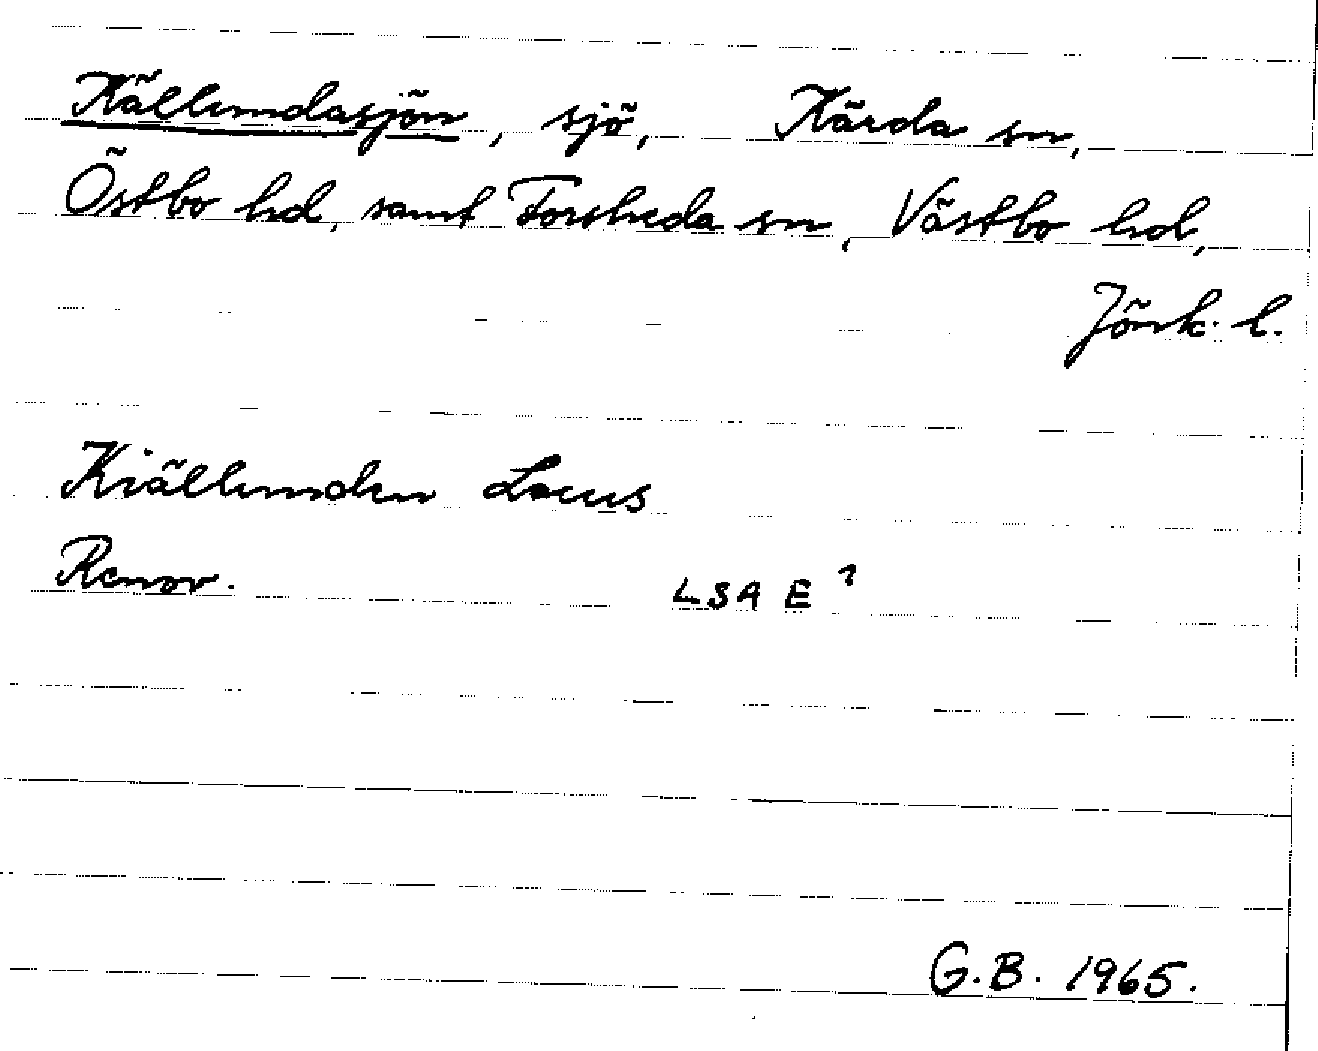 Källundasjön, sjö, Kärda sn,
Östbo hd, samt Forsheda sn, Västbo hd,
Jönk. l.
Kiällunden Lacus
Renov. LSA E ?
G.B. 1965.